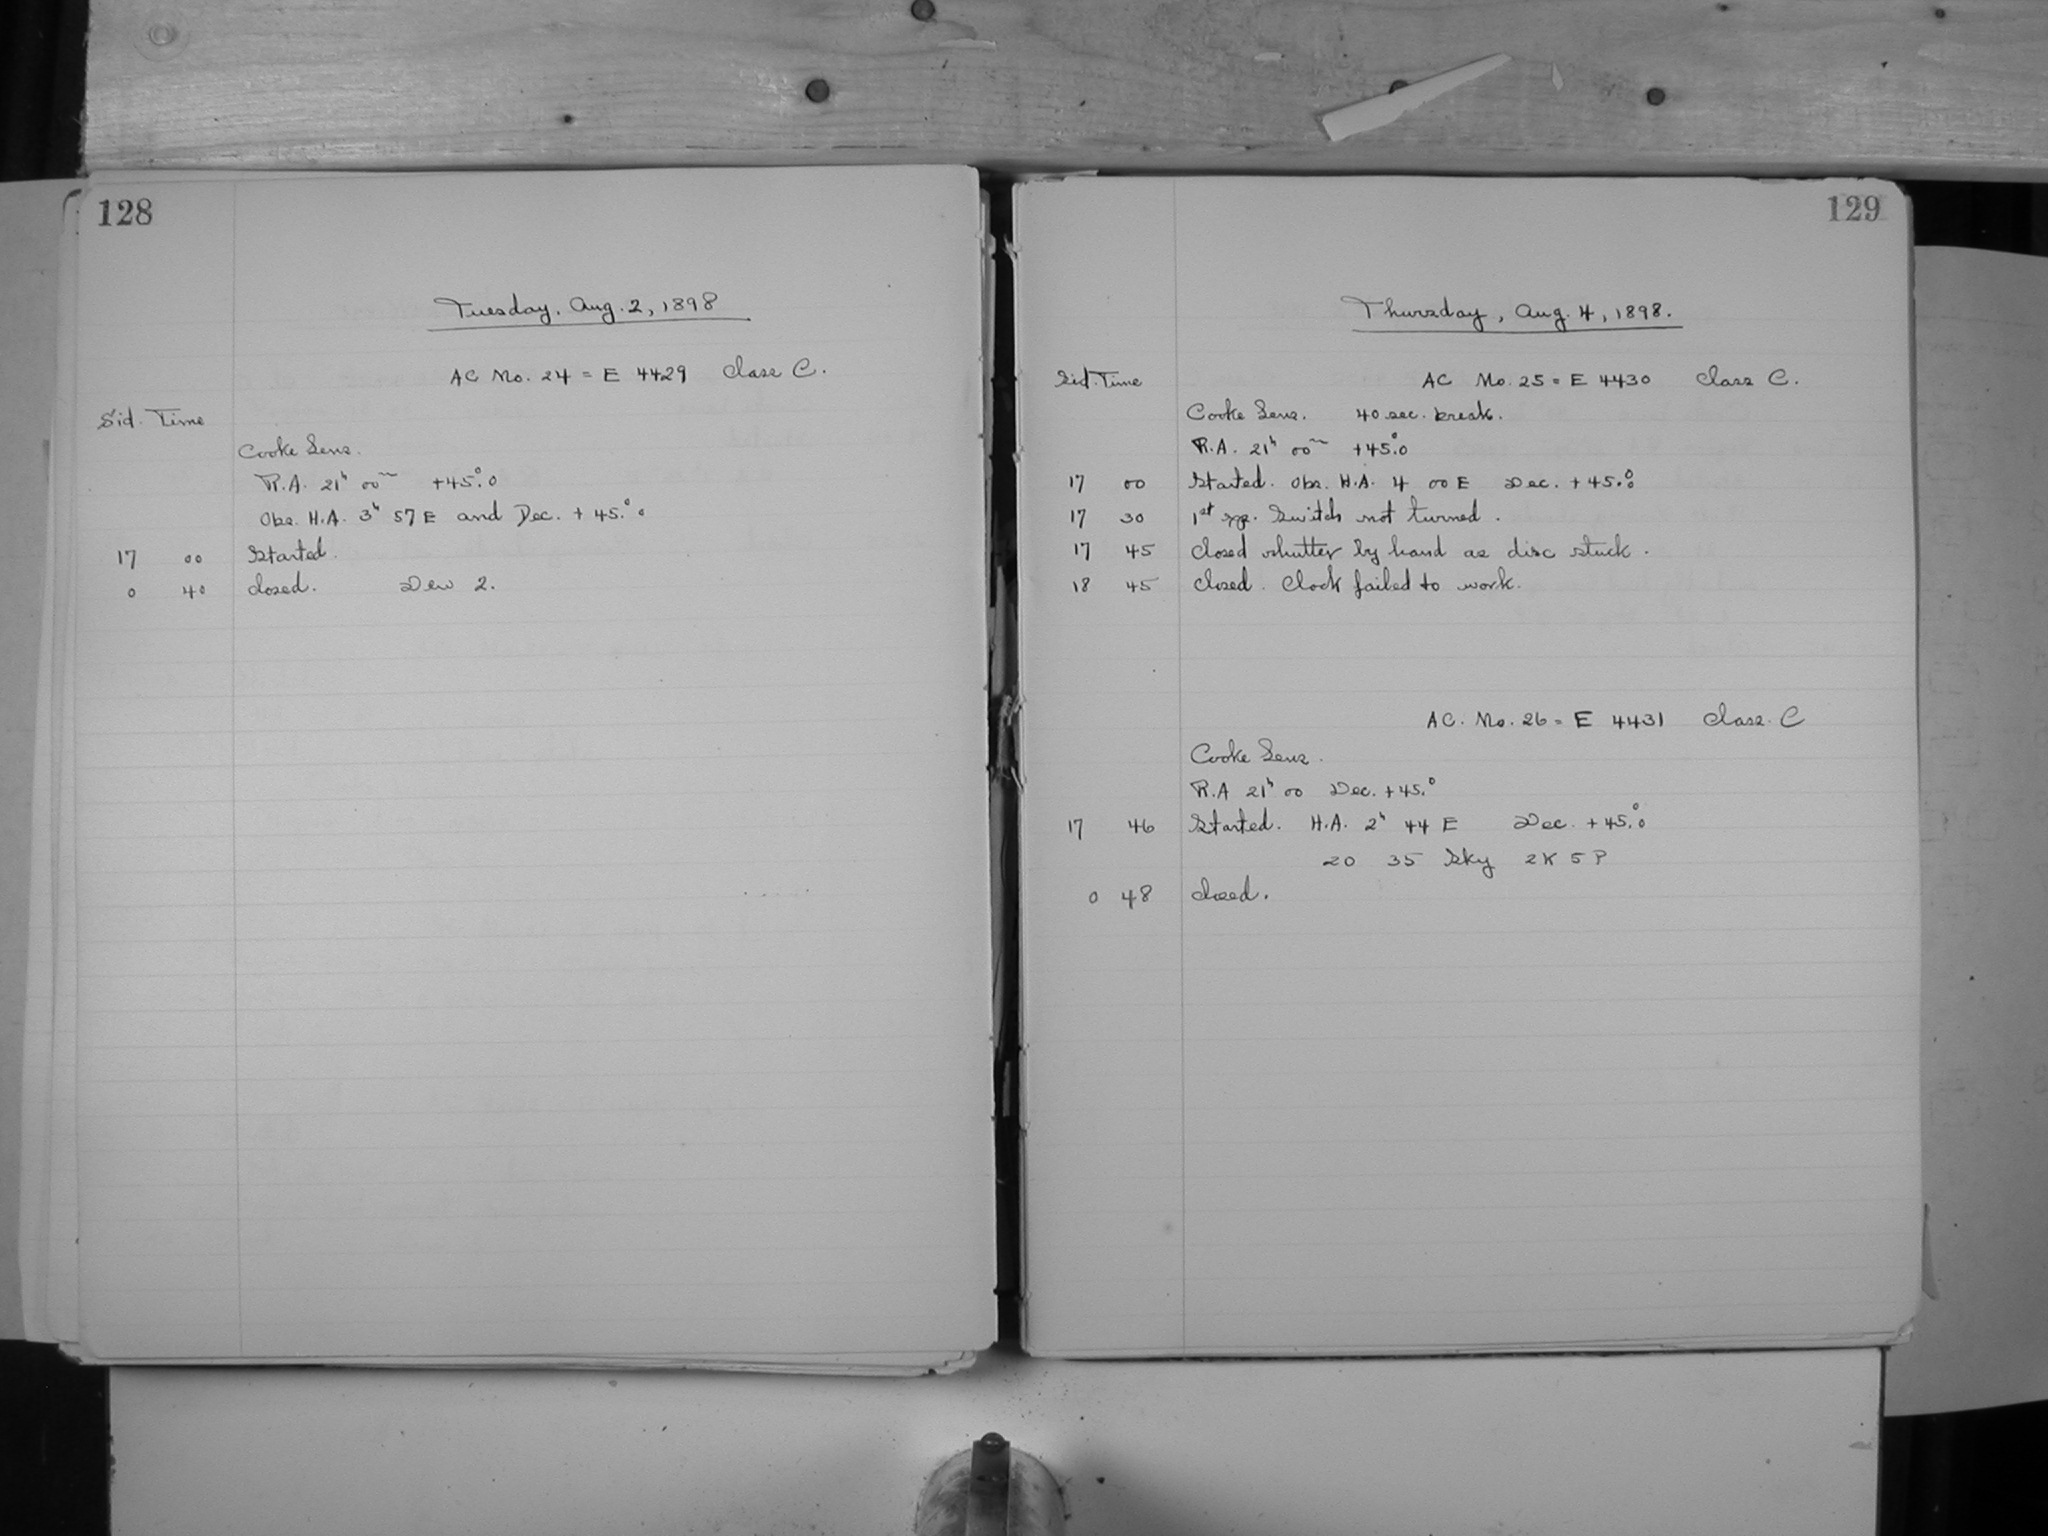 128
Tuesday, Aug. 2, 1898
AC No. 24 = E 4429 Class C.
Sid. Time
Cooke Lens.
R.A. 21h 00m +45°.0
Obs. H.A. 3h 57 E and Dec. + 45.°0
17 00 Started.
0 40 closed. Dew 2.
129
Thursday, Aug. 4, 1898.
Sid. Time AC No. 25 = E 4430 Class C.
Cooke Lens. 40 sec. break.
R.A. 21h 00m +45°.0
17 00 Started. Obs. H.A. 4 00 E Dec. + 45.°0
17 30 1st exp. Switch not turned.
17 45 Closed shutter by hand as disc stuck.
18 45 Closed. Clock failed to work.
AC. No. 26 = E 4431 Class C
Cooke Lens.
R.A 21h 00 Dec. +45.°
17 46 Started. H.A. 2h 44 E Dec. + 45.°0
20 35 Sky 2K 5P
0 48 closed.